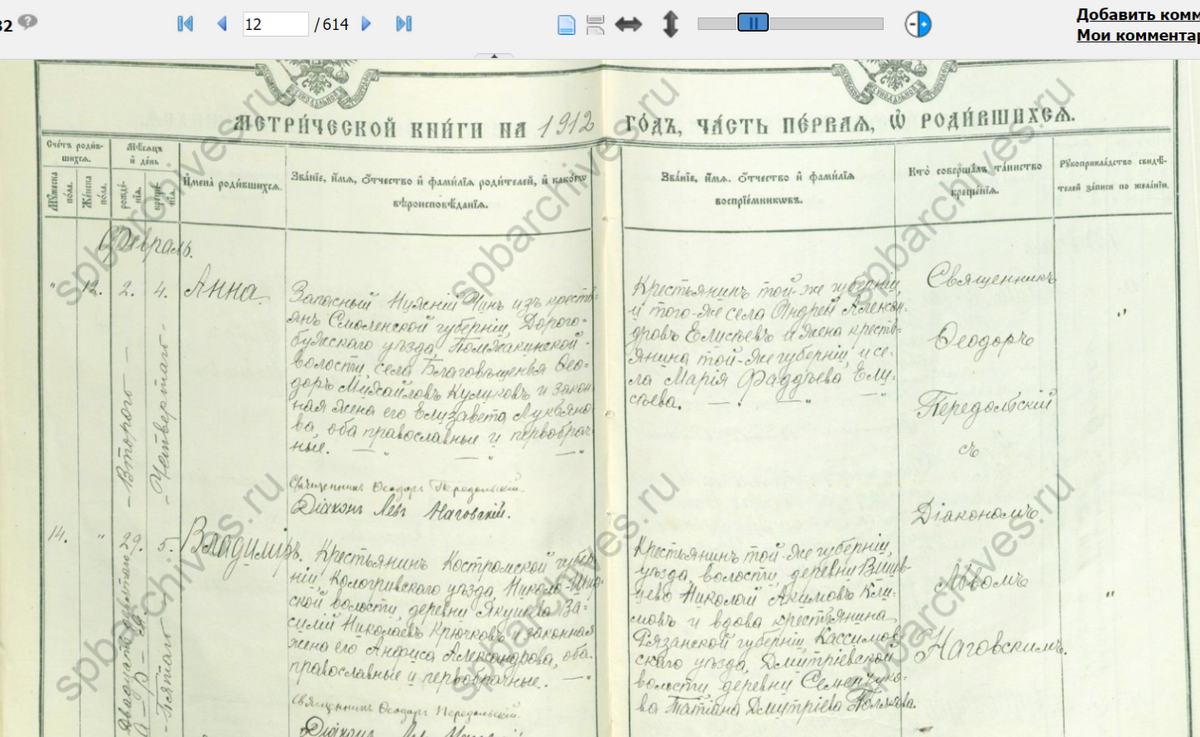 32
12 / 614
Добавить комм
Мои комментар
МЕТРИЧЕСКОЙ КНИГИ НА 1912 ГОДЪ, ЧАСТЬ ПЕРВАЯ, Ѡ РОДИВШИХСЯ.
Счетъ родив-
шихся.
Мѣсяцъ
и день
Мужеска
пола.
Женска
пола.
рожде-
нія.
креще-
нія.
Имена родившихся.
Званіе, имя, отчество и фамилія родителей, и какого
вѣроисповѣданія.
Званіе, имя, отчество и фамилія
воспріемниковъ.
Кто совершалъ таинство
крещенія.
Рукоприкладство свидѣ-
телей записи по желанію.
Февраль.
" 12. 2. 4. Анна.
Второго
Четвертаго
Запасный Нижній Чинъ изъ кресть-
янъ Смоленской губерніи, Дорого-
бужскаго уѣзда,
волости, села Благовѣщенья Ѳео-
доръ Михайловъ Куликовъ и закон-
ная жена его Елизавета Лукьяно-
ва, оба православные и первобрач-
ные.
Священникъ Ѳеодоръ Передольскій.
Діаконъ Левъ Наговскій.
Крестьянинъ той-же губерніи
и того-же села Андрей Алексан-
дровъ Елисѣевъ и жена кресть-
янина той-же губерніи и се-
ла Марія Фаддѣева Ели-
сѣева.
Священникъ
Ѳеодоръ
Передольскій
съ
Діакономъ
Львомъ
Наговскимъ.
14. " 29. 5. Владиміръ.
Двадцать девятаго
Пятаго
Крестьянинъ Костромской губер-
ніи, Кологривскаго уѣзда,
ской волости деревни Якимова Ва-
силій Николаевъ Крючковъ и законная
жена его Анфиса Александрова, оба
православные и первобрачные.
Священникъ Ѳеодоръ Передольскій.
Діаконъ Левъ Наговскій.
Крестьянинъ той-же губерніи,
уѣзда, волости, деревни
Николай Акимовъ Кли-
мовъ и вдова крестьянина
Рязанской губерніи, Кассимов-
скаго уѣзда, Дмитріевской
волости деревни
Татіана Дмитріева Полякова.
spbarchives.ru
spbarchives.ru
spbarchives.ru
spbarchives.ru
spbarchives.ru
spbarchives.ru